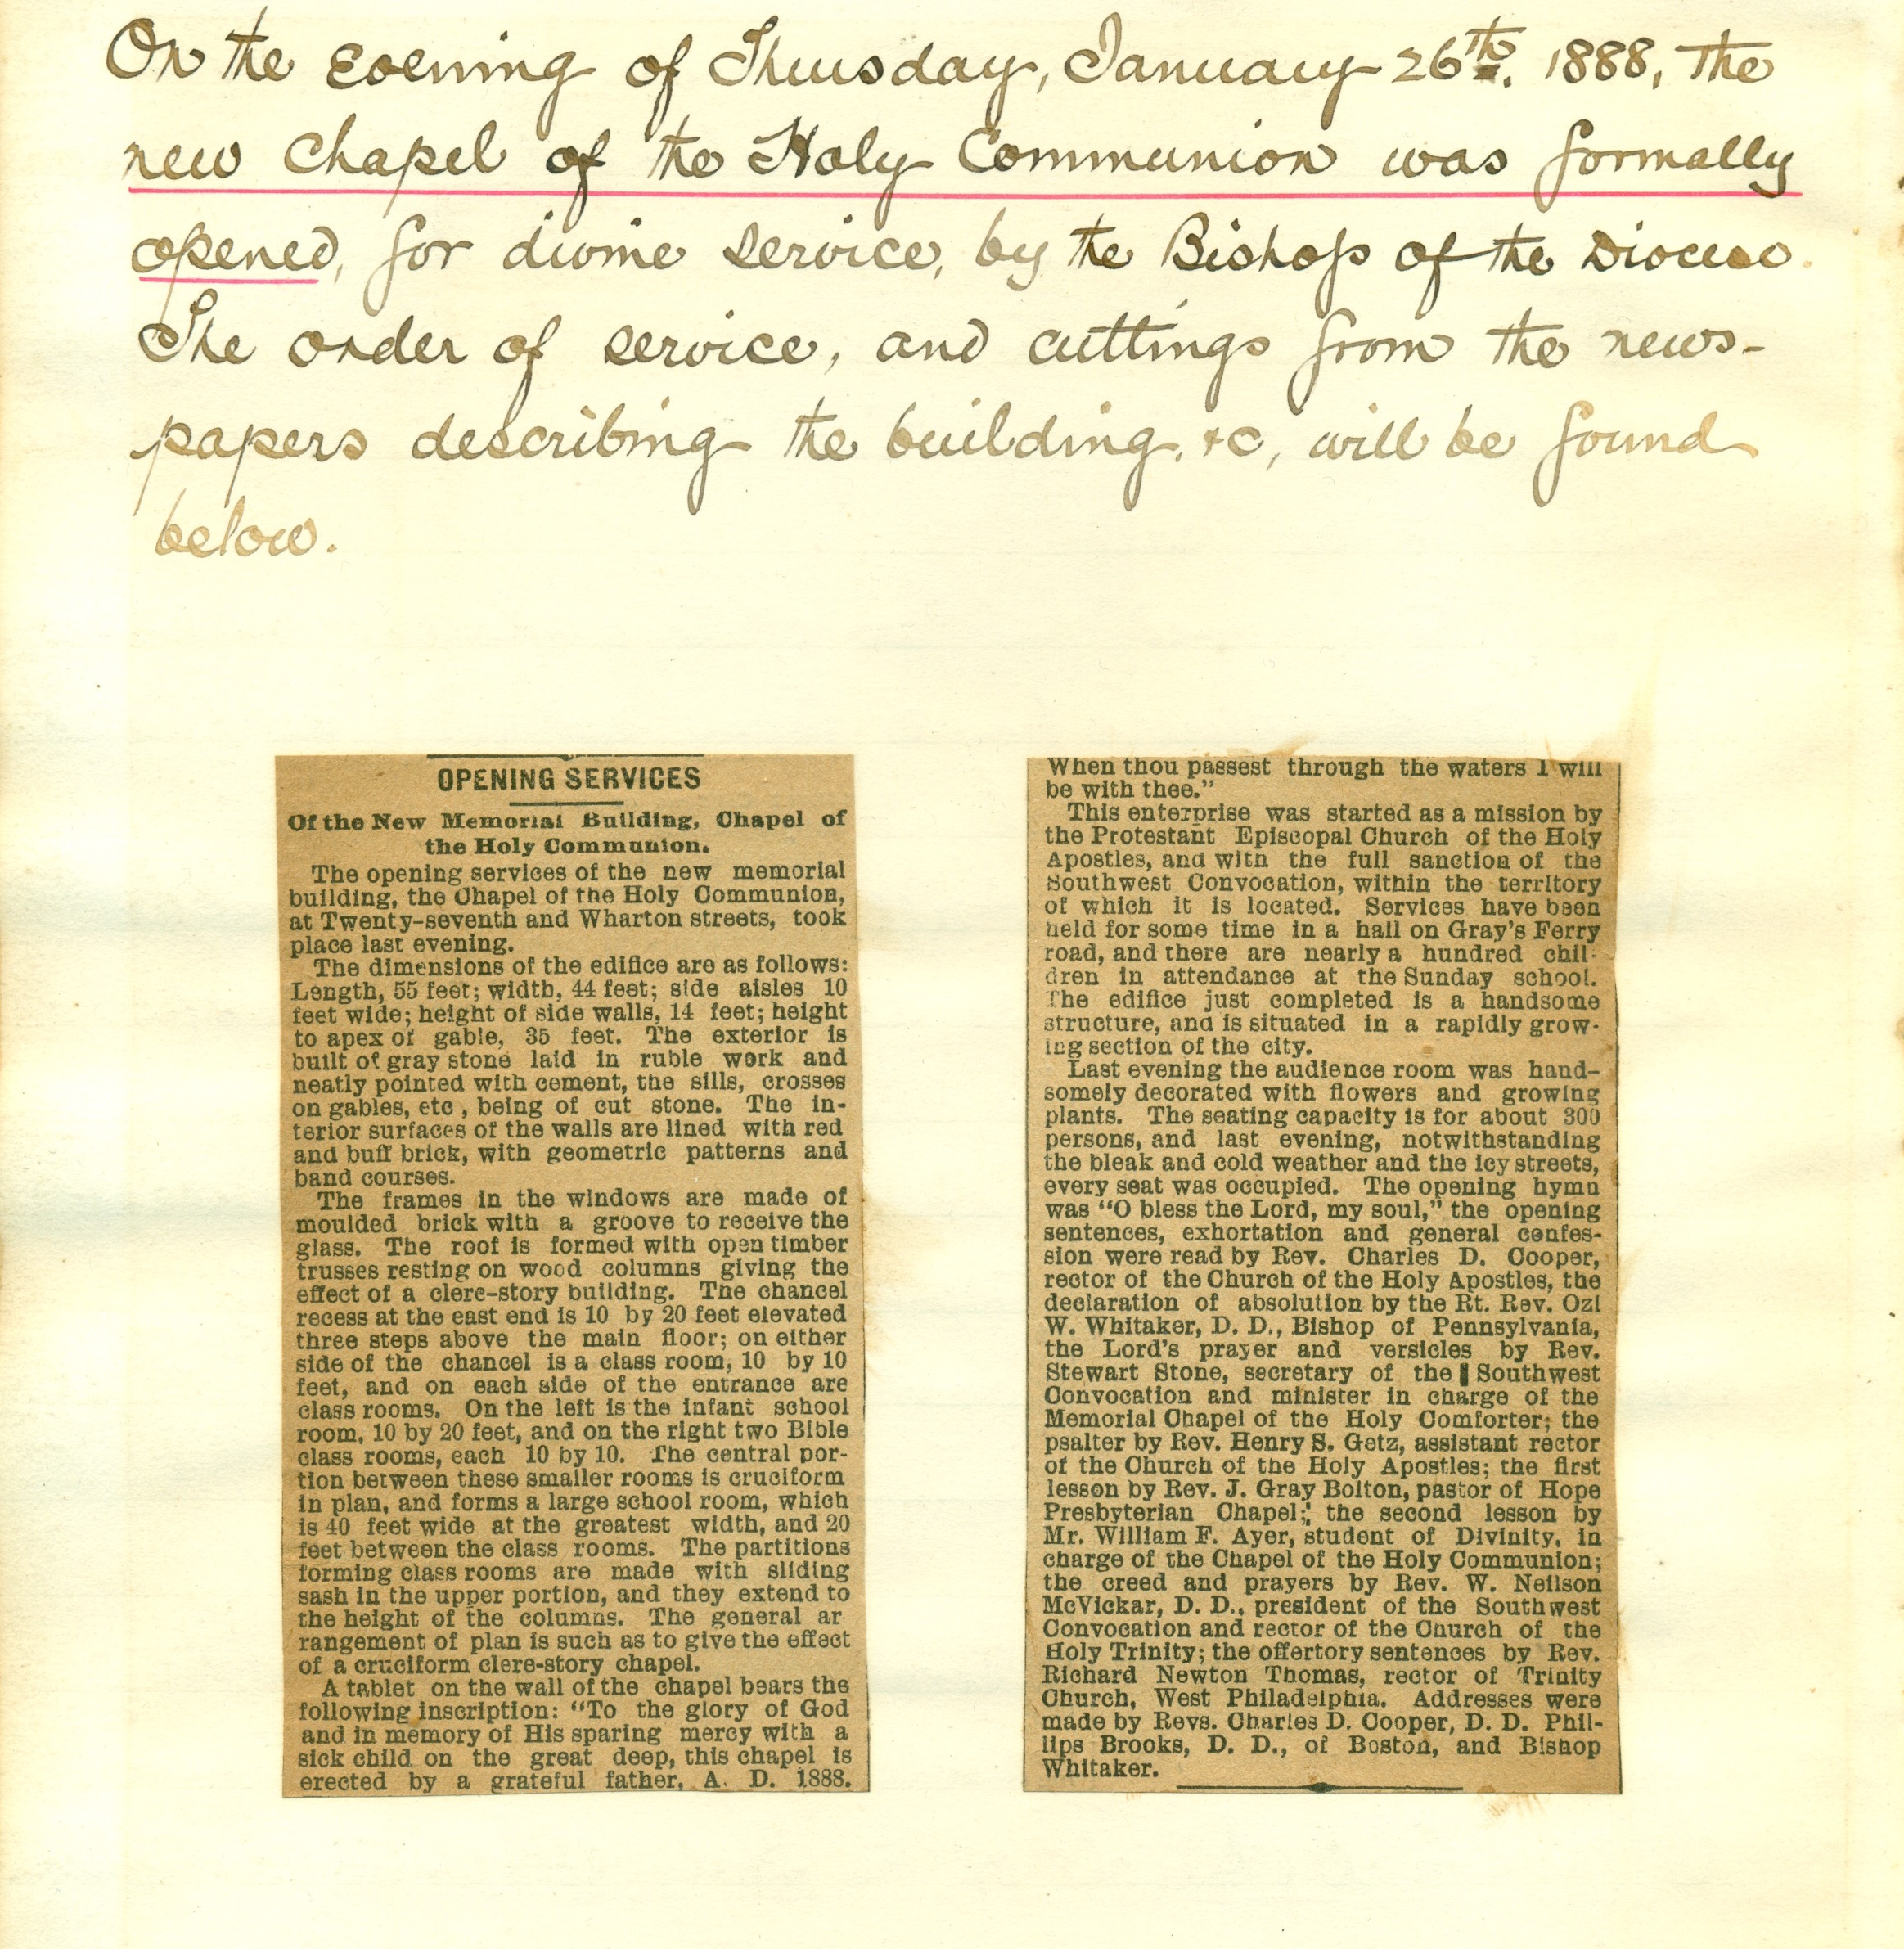 On the Evening of Thursday, January 26th. 1888, the
new Chapel of the Holy Communion was formally
opened, for divine service, by the Bishop of the Diocese.
The order of service, and cuttings from the news-
papers describing the building, &c, will be found
below.
OPENING SERVICES
Of the New Memorial Building, Chapel of
the Holy Communion.
The opening services of the new memorial
building, the Chapel of the Holy Communion,
at Twenty-seventh and Wharton streets, took
place last evening.
The dimensions of the edifice are as follows:
Length, 55 feet; width, 44 feet; side aisles 10
feet wide; height of side walls, 14 feet; height
to apex of gable, 35 feet. The exterior is
built of gray stone laid in ruble work and
neatly pointed with cement, the sills, crosses
on gables, etc, being of cut stone. The in-
terior surfaces of the walls are lined with red
and buff brick, with geometric patterns and
band courses.
The frames in the windows are made of
moulded brick with a groove to receive the
glass. The roof is formed with open timber
trusses resting on wood columns giving the
effect of a clere-story building. The chancel
recess at the east end is 10 by 20 feet elevated
three steps above the main floor; on either
side of the chancel is a class room, 10 by 10
feet, and on each side of the entrance are
class rooms. On the left is the infant school
room, 10 by 20 feet, and on the right two Bible
class rooms, each 10 by 10. The central por-
tion between these smaller rooms is cruciform
in plan, and forms a large school room, which
is 40 feet wide at the greatest width, and 20
feet between the class rooms. The partitions
forming class rooms are made with sliding
sash in the upper portion, and they extend to
the height of the columns. The general ar
rangement of plan is such as to give the effect
of a cruciform clere-story chapel.
A tablet on the wall of the chapel bears the
following inscription: "To the glory of God
and in memory of His sparing mercy with a
sick child on the great deep, this chapel is
erected by a grateful father, A. D. 1888.
When thou passest through the waters I will
be with thee."
This enterprise was started as a mission by
the Protestant Episcopal Church of the Holy
Apostles, and with the full sanction of the
Southwest Convocation, within the territory
of which it is located. Services have been
held for some time in a hall on Gray's Ferry
road, and there are nearly a hundred chil-
dren in attendance at the Sunday school.
The edifice just completed is a handsome
structure, and is situated in a rapidly grow-
ing section of the city.
Last evening the audience room was hand-
somely decorated with flowers and growing
plants. The seating capacity is for about 300
persons, and last evening, notwithstanding
the bleak and cold weather and the icy streets,
every seat was occupied. The opening hymn
was "O bless the Lord, my soul," the opening
sentences, exhortation and general confes-
sion were read by Rev. Charles D. Cooper,
rector of the Church of the Holy Apostles, the
declaration of absolution by the Rt. Rev. Ozi
W. Whitaker, D. D., Bishop of Pennsylvania,
the Lord's prayer and versicles by Rev.
Stewart Stone, secretary of the Southwest
Convocation and minister in charge of the
Memorial Chapel of the Holy Comforter; the
psalter by Rev. Henry S. Getz, assistant rector
of the Church of the Holy Apostles; the first
lesson by Rev. J. Gray Bolton, pastor of Hope
Presbyterian Chapel; the second lesson by
Mr. William F. Ayer, student of Divinity, in
charge of the Chapel of the Holy Communion;
the creed and prayers by Rev. W. Neilson
McVickar, D. D., president of the Southwest
Convocation and rector of the Church of the
Holy Trinity; the offertory sentences by Rev.
Richard Newton Thomas, rector of Trinity
Church, West Philadelphia. Addresses were
made by Revs. Charles D. Cooper, D. D. Phil-
lips Brooks, D. D., of Boston, and Bishop
Whitaker.